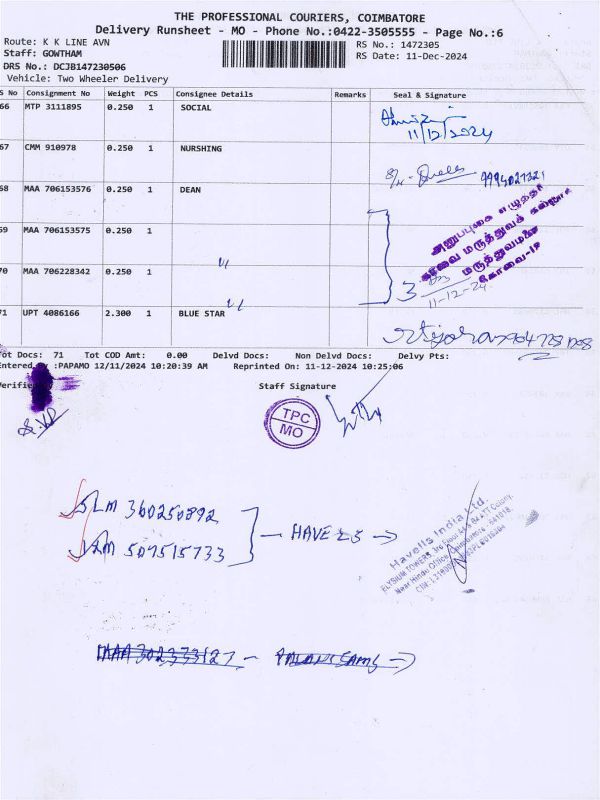 THE PROFESSIONAL COURIERS, COIMBATORE
Delivery Runsheet - MO - Phone No.:0422-3505555 - Page No.:6
Route: K K LINE AVN
RS No.: 1472305
Staff: GOWTHAM
RS Date: 11-Dec-2024
DRS No.: DCJB147230506
Vehicle: Two Wheeler Delivery
S No Consignment No Weight PCS Consignee Details Remarks Seal & Signature
66 MTP 3111895 0.250 1 SOCIAL
11/12/2024
67 CMM 910978 0.250 1 NURSHING
68 MAA 706153576 0.250 1 DEAN
அனுப்புகை எழுத்தர்
கோவை மருத்துவக் கல்லூரி
69 MAA 706153575 0.250 1 〃
மருத்துவமனை
கோவை-18
70 MAA 706228342 0.250 1 〃
3
11-12-24
71 UPT 4086166 2.300 1 BLUE STAR
Tot Docs: 71 Tot COD Amt: 0.00 Delvd Docs: Non Delvd Docs: Delvy Pts:
Entered By :PAPAMO 12/11/2024 10:20:39 AM Reprinted On: 11-12-2024 10:25:06
Verified
Staff Signature
TPC
MO
SLM 360250892
HAVELLS
509515733
Havells India Ltd.
ELYSIUM TOWERS, 3rd Floor
Near Hindu Office, Coimbatore - 641018.